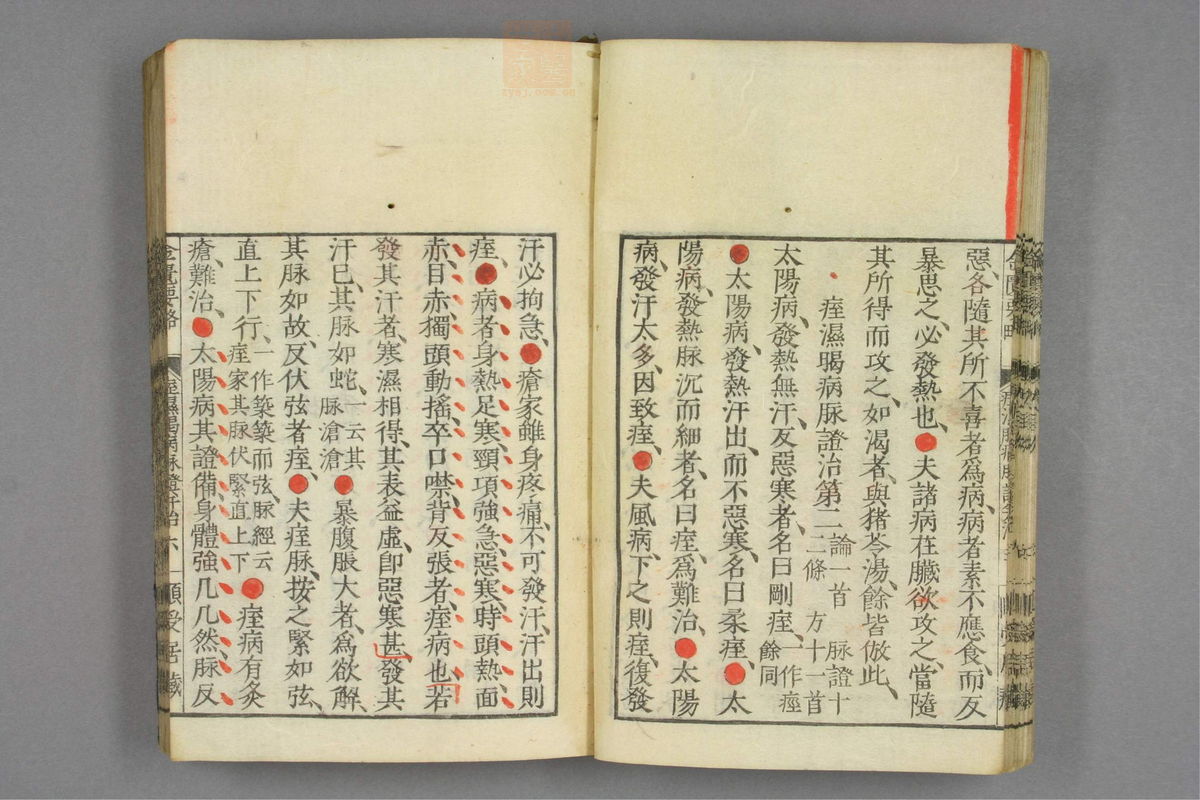 惡、各隨其所不喜者為病、病者素不應食、而反
暴思之、必發熱也、夫諸病在臟欲攻之、當隨
其所得而攻之、如渴者、與豬苓湯、餘皆倣此、
痙濕暍病脉證治第二 論一首 脉證十二條 方十一首
太陽病、發熱無汗、反惡寒者、名曰剛痙、一作痙餘同
太陽病、發熱汗出、而不惡寒、名曰柔痙、太
陽病、發熱脉沉而細者、名曰痙、為難治、太陽
病、發汗太多、因致痙、夫風病、下之則痙、復發
汗必拘急、瘡家雖身疼痛、不可發汗、汗出則
痙、病者身熱足寒、頸項強急、惡寒、時頭熱、面
赤、目赤、獨頭動搖、卒口噤、背反張者、痙病也、若
發其汗者、寒濕相得、其表益虛、即惡寒甚、發其
汗已、其脉如蛇、一云其脉滄滄 暴腹脹大者、為欲解、
其脉如故、反伏弦者痙、夫痙脉、按之緊如弦、
直上下行、一作築築而弦、脉經云痙家其脉伏緊直上下 痙病有灸
瘡、難治、太陽病其證備、身體強几几然、脉反
金匱要略 痙濕暍病脉證并治 六